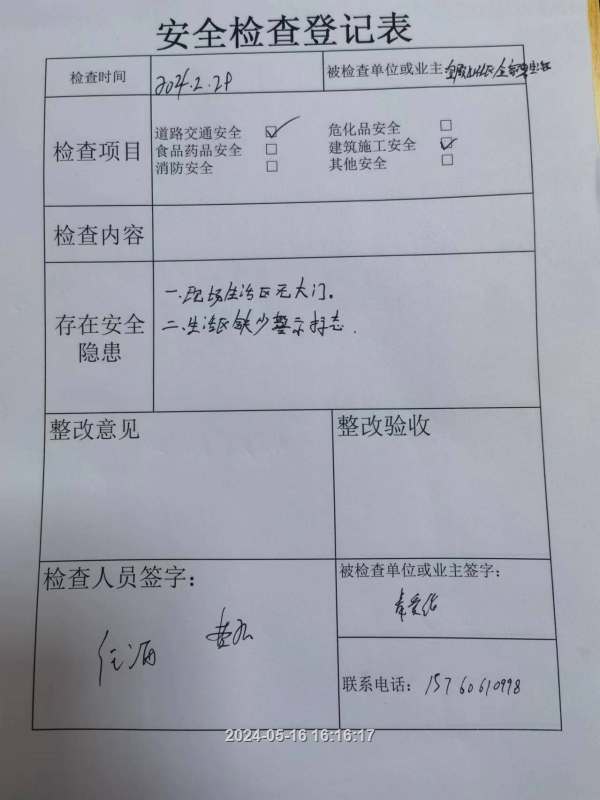 安全检查登记表
检查时间 2024.2.28 被检查单位或业主:
检查项目
道路交通安全 ☑ 危化品安全 □
食品药品安全 □ 建筑施工安全 ☑
消防安全 □ 其他安全 □
检查内容
存在安全隐患
一.现场生活区无大门。
二.生活区缺少警示标志.
整改意见 整改验收
检查人员签字: 被检查单位或业主签字:
联系电话: 15760610998
2024-05-16 16:16:17